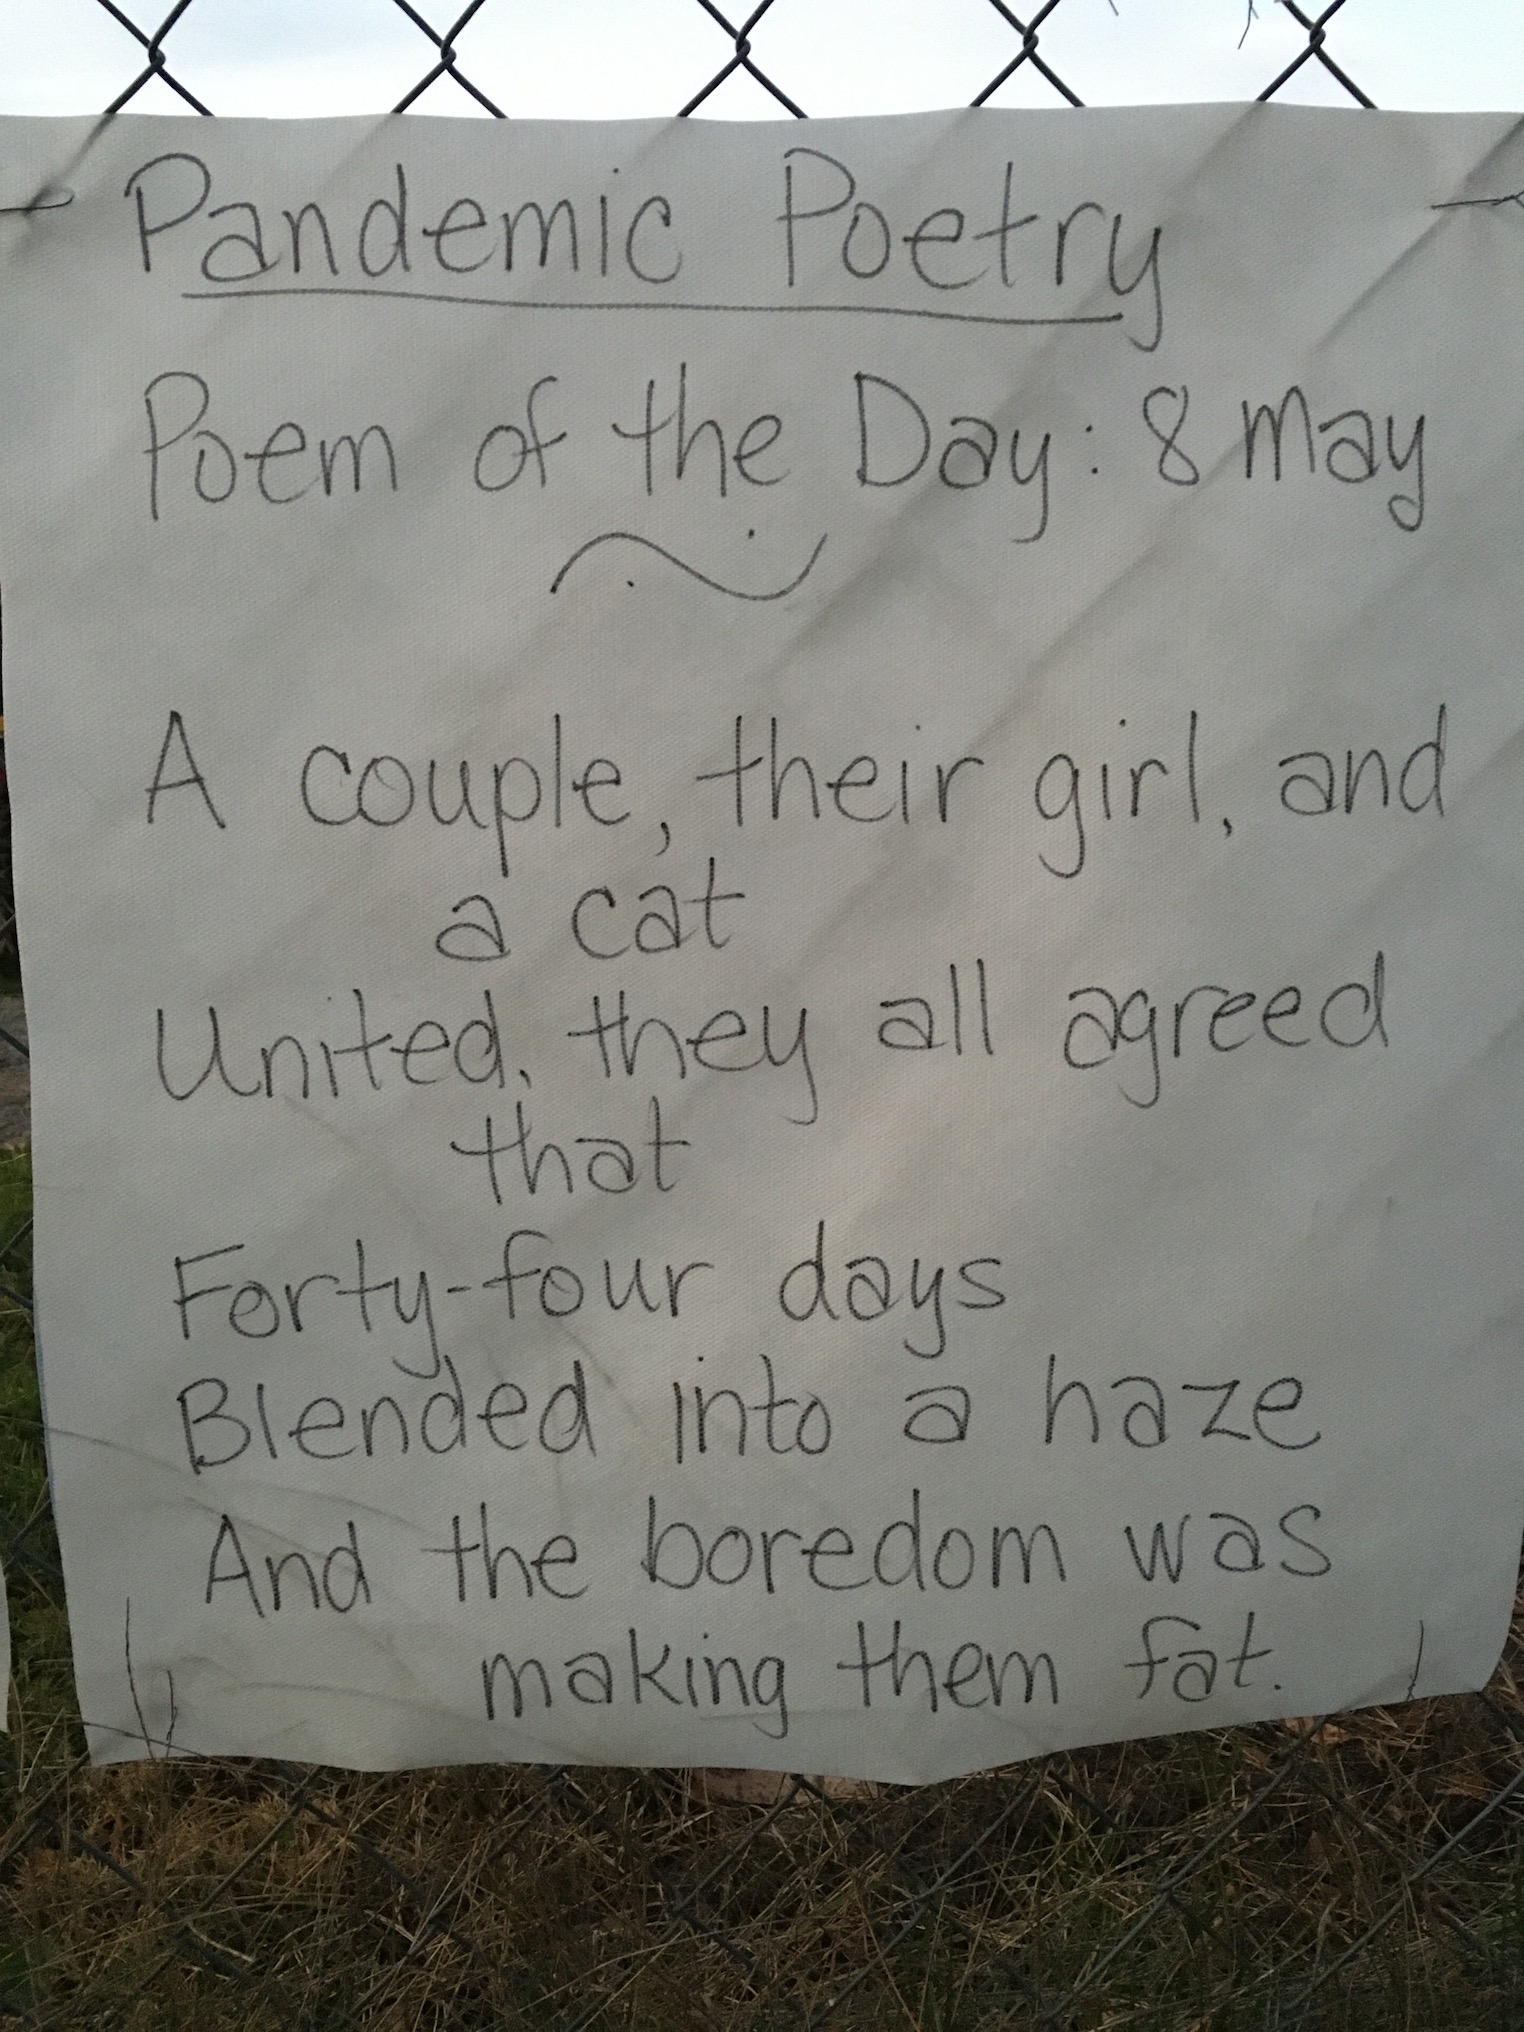 Pandemic Poetry
Poem of the Day: 8 May
A couple, their girl, and
a cat
United, they all agreed
that
Forty-four days
Blended into a haze
And the boredom was
making them fat.